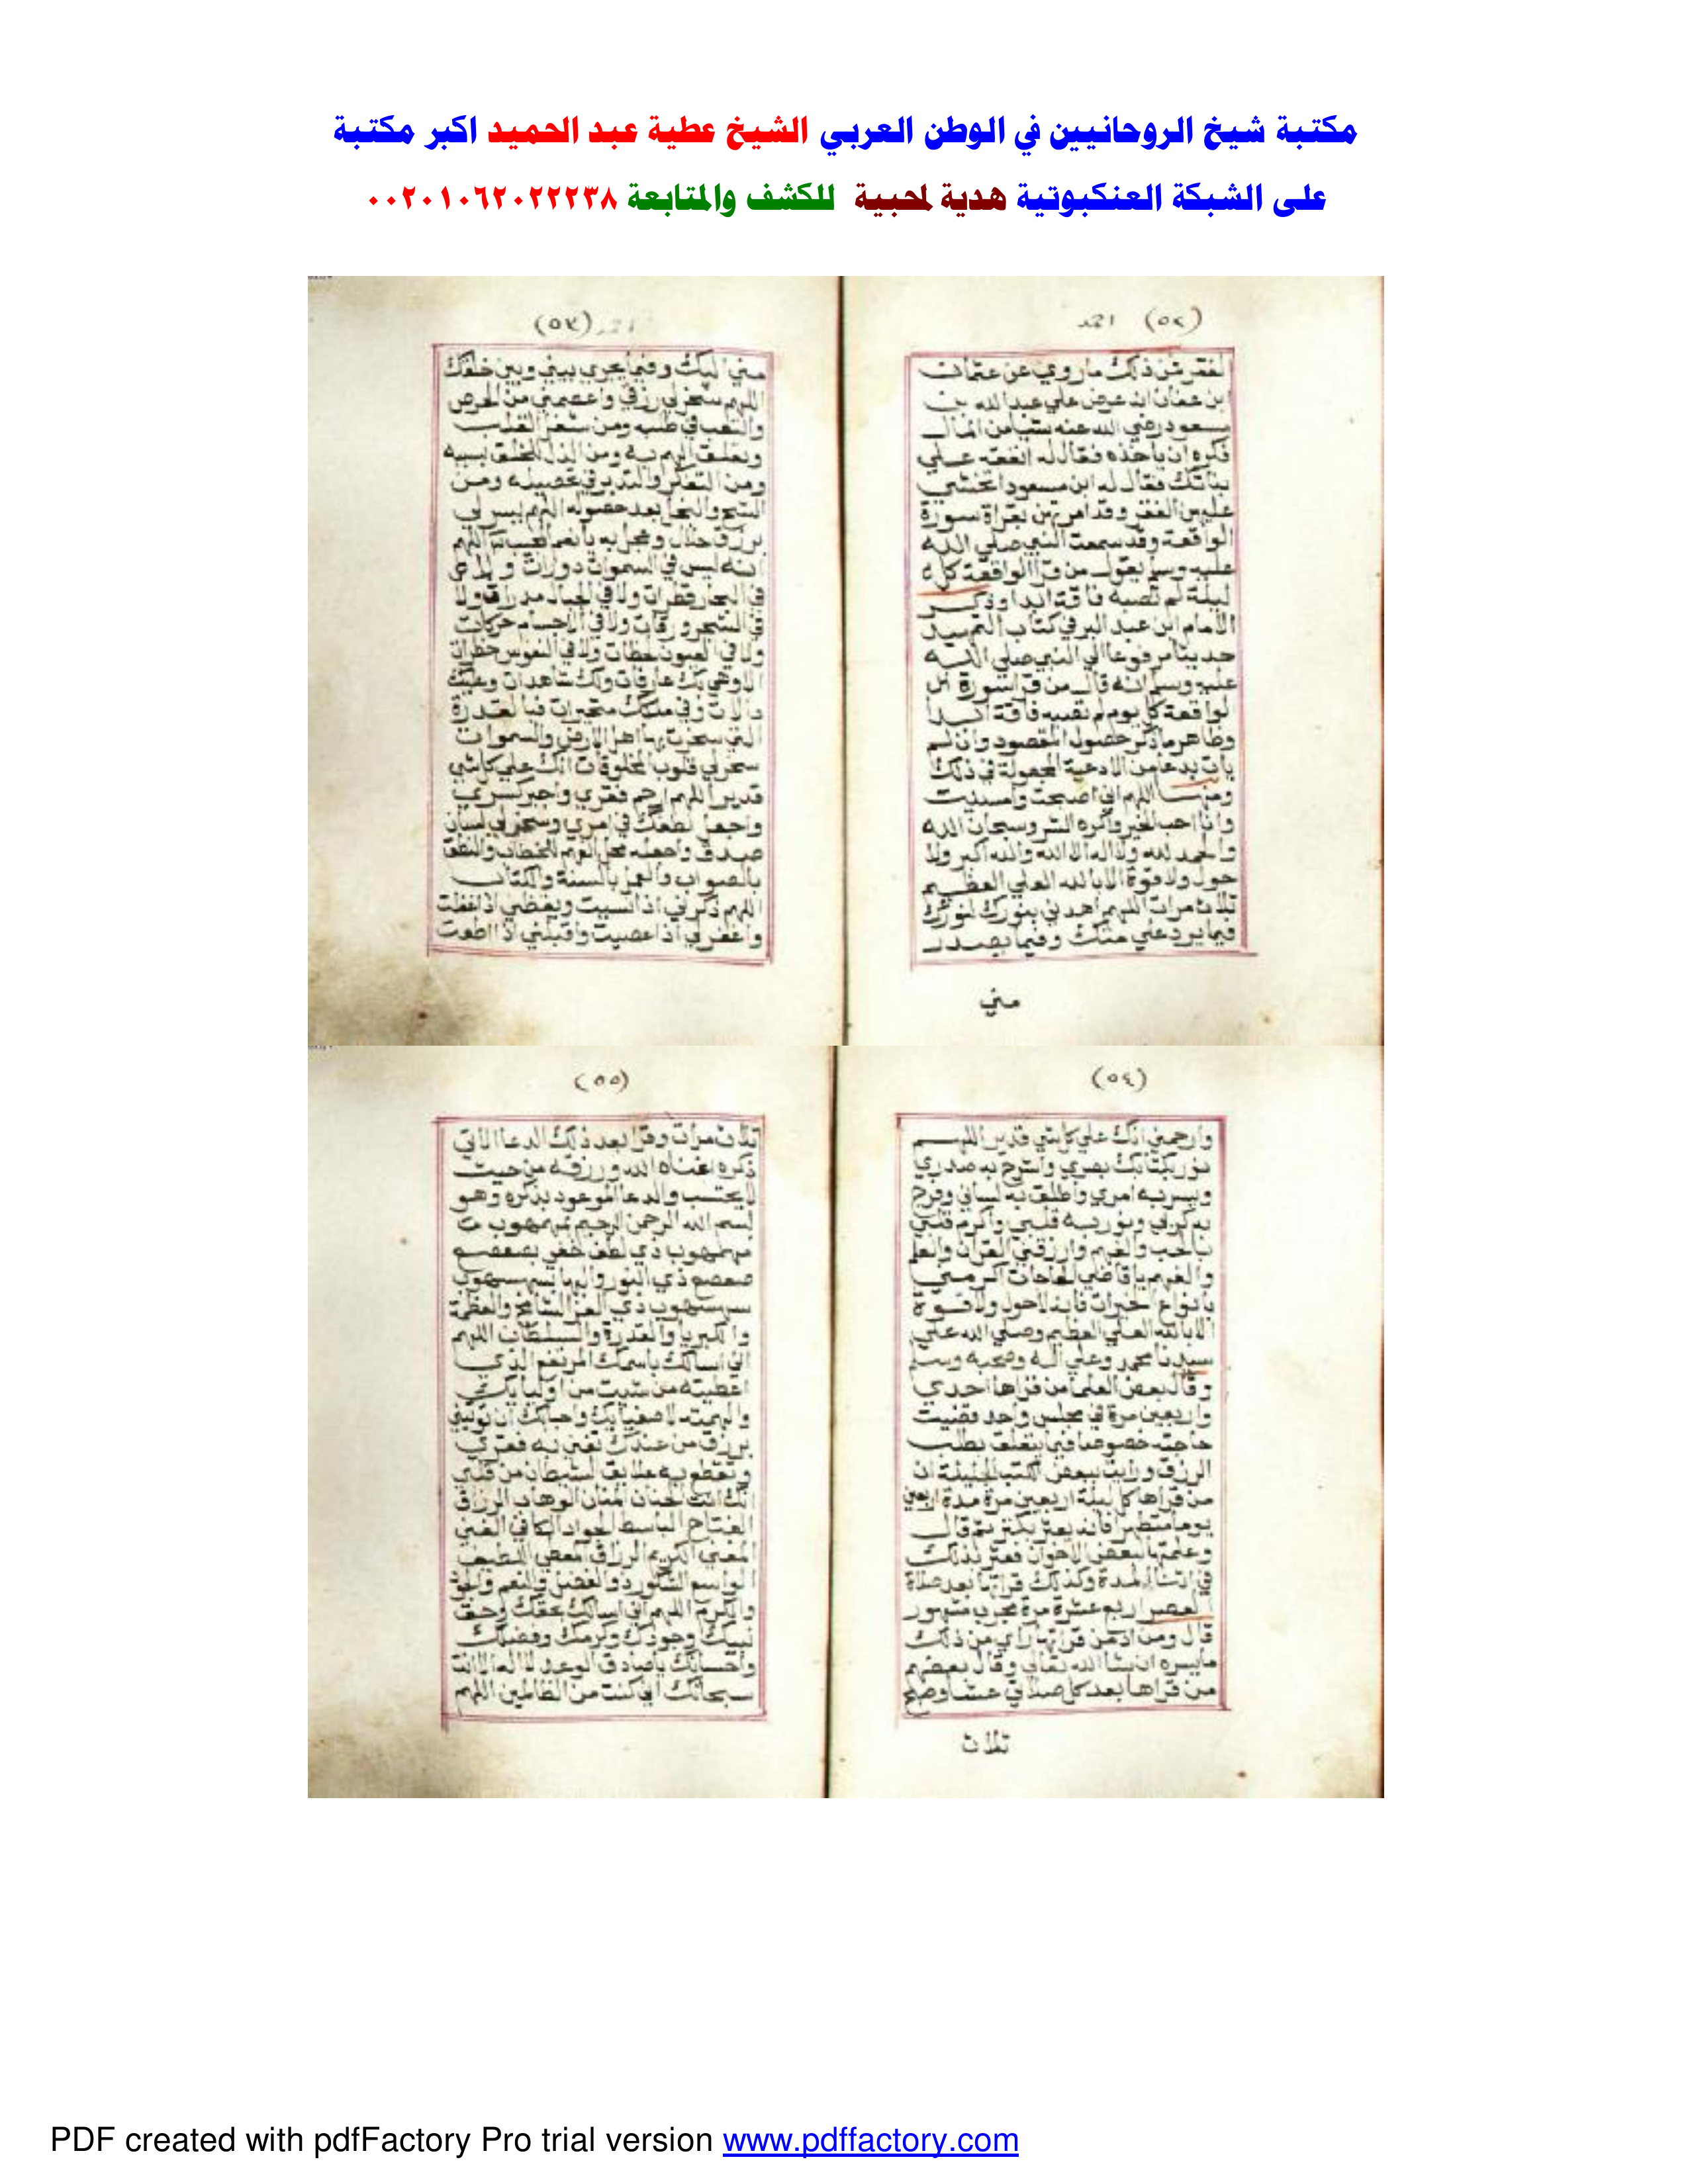 مكتبة شيخ الروحانيين في الوطن العربي الشيخ عطية عبد الحميد اكبر مكتبة
على الشبكة العنكبوتية هدية لمحبية للكشف والمتابعة ٠٠٢٠١٠٦٢٠٢٢٢٣٨
(٥٢) احمد
لفقر فمن ذلك ما روي عن عثمان
ابن عفان انه عرض علي عبدالله بن
مسعود رضي الله عنه شيا من المال
فكره ان ياخذه فقال له انفقه علي
بناتك فقال له ابن مسعود اتخشي
عليهن الفقر وقد امرتهن بقراة سورة
الواقعة وقد سمعت النبي صلي الله
عليه وسلم يقول من قرا الواقعة كل
ليلة لم تصبه فاقة ابدا وذكر
الامام ابن عبد البر في كتاب التمهيد
حديثا مرفوعا الي النبي صلي الله
عليه وسلم انه قال من قرا سورة
لواقعة كل يوم لم تصبه فاقة ابدا
وظاهر ما ذكر حصول المقصود وان لم
يات بدعا من الادعية المجعولة في ذلك
ومنها اللهم اني اصبحت وامسيت
وانا احب الخير واكره الشر وسبحان الله
والحمد لله ولا اله الا الله والله اكبر ولا
حول ولا قوة الا بالله العلي العظيم
ثلاث مرات اللهم اهدني بنورك لنورك
فيما يرد علي منك وفيما يصدر
مني
(٥٣)
مني اليك وفيما يجري بيني وبين خلقك
اللهم سخر لي رزقي واعصمني من الحرص
والتعب في طلبه ومن شغل القلب
وتعلق الهم به ومن الذل للخلق بسببه
ومن التفكر والتدبر في تحصيله ومن
الشح والبخل بعد حصوله اللهم يسر لي
برزق حلال وعجل به يا نعم المجيب اللهم
انه ليس في السموات دورات ولا
في البحار قطرات ولا في الجبال مدرات ولا
في الشجر ورقات ولا في الاجسام حركات
ولا في العيون لحظات ولا في النفوس خطرات
الا وهي بك عارفات ولك شاهدات وعليك
دالات وفي ملكك متحيرات فبالقدرة
التي سخرت بها اهل الارض والسموات
سخر لي قلوب المخلوقات انك علي كل شي
قدير اللهم ارحم فقري واجبر كسري
واجعل لطفك في امري وسخر لي لسان
صدق واجعله محل الفهم للخطاب والنطق
بالصواب والعمل بالسنة والكتاب
اللهم ذكرني اذا نسيت ويقظني اذا غفلت
واغفر لي اذا عصيت واقبلني اذا اطعت
(٥٤)
وارحمني انك علي كل شي قدير اللهم
نور بكتابك بصري واشرح به صدري
ويسر به امري واطلق به لساني وفرج
به كربي ونور به قلبي واكرم قلبي
بالحب والفهم وارزقني القران والعلم
والفهم يا قاضي الحاجات اكرمني
بانواع الخيرات فانه لا حول ولا قوة
الا بالله العلي العظيم وصلي الله علي
سيدنا محمد وعلي اله وصحبه وسلم
وقال بعض العلما من قراها احدي
واربعين مرة في مجلس واحد قضيت
حاجته خصوصا فيما يتعلق بطلب
الرزق ورايت ببعض الكتب الجليلة ان
من قراها كل ليلة اربعين مرة مدة اربعين
يوما فانه يعثر بكنز ثم قال
وعلمتها لبعض الاخوان فعثر بذلك
في اثنا المدة وكذلك قراتها بعد صلاة
العصر اربع عشرة مرة مجرب مشهور
قال ومن ادمن قراتها راي من ذلك
ما يسره ان شا الله تعالي وقال بعضهم
من قراها بعد كل صلاتي عشا وصبح
ثلاث
(٥٥)
ثلاث مرات وقرا بعد ذلك الدعا الاتي
ذكره اغناه الله ورزقه من حيث
لا يحتسب والدعا الموعود بذكره وهو
بسم الله الرحمن الرحيم
ذي لطف خفي
ذي النور والبها
ذي العز الشامخ والعظمة
والكبريا والقدرة والسلطان اللهم
اني اسالك باسمك المرتفع الذي
اعطيته من شيت من اوليايك
والهمته لاصفيايك واحبابك ان
برزق من عندك تغني به فقري
وتقطع به علايق الشيطان من قلبي
انك انت الحنان المنان الوهاب الرزاق
الفتاح الباسط الجواد الكافي الغني
المغني الكريم الرزاق
الواسع الشكور ذو الفضل والنعم والجود
والكرم اللهم اني اسالك بحقك وحق
نبيك وجودك وكرمك وفضلك
واحسانك يا صادق الوعد لا اله الا انت
سبحانك اني كنت من الظالمين اللهم
PDF created with pdfFactory Pro trial version www.pdffactory.com